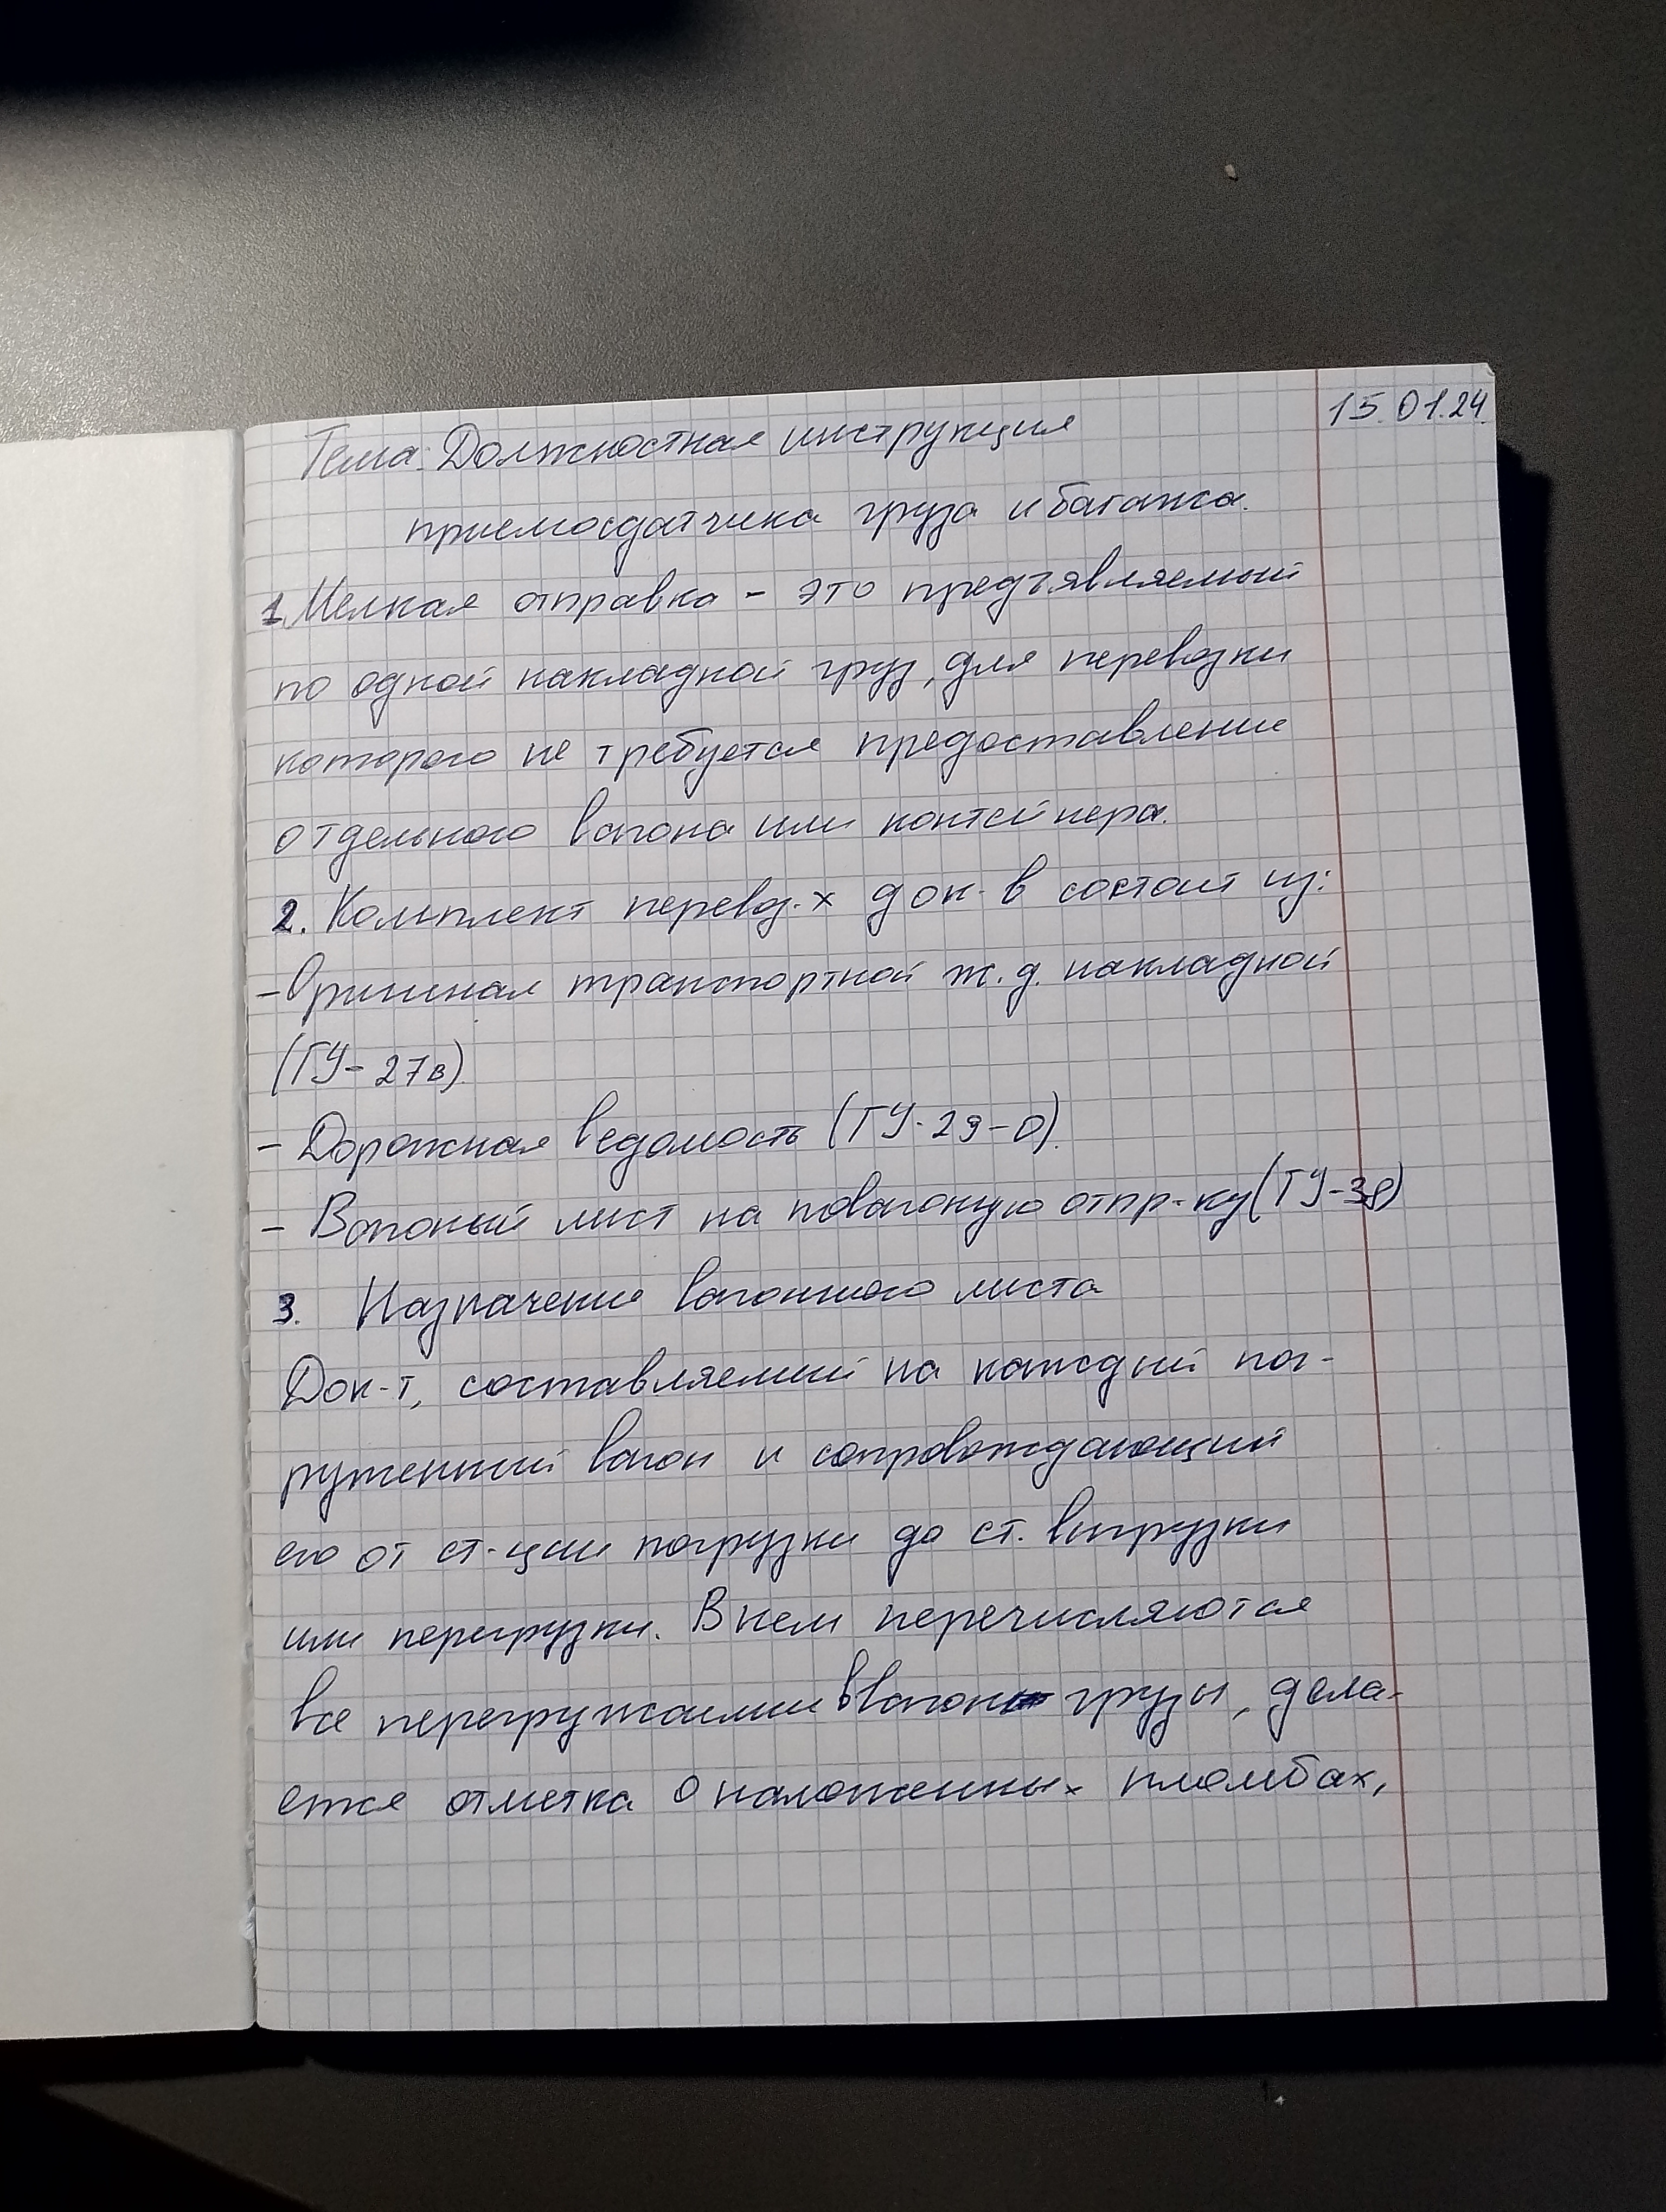 15.01.24.
Тема: Должностная инструкция
приемосдатчика груза и багажа.
1. Мелкая отправка - это предъявляемый
по одной накладной груз, для перевозки
которого не требуется предоставление
отдельного вагона или контейнера.
2. Комплект перевоз-х док-в состоит из:
- Оригинал транспортной ж.д. накладной
(ГУ-27в).
- Дорожная ведомость (ГУ-29-О).
- Вагоный лист на повагоную отпр-ку (ГУ-38)
3. Назначение вагонного листа
Док-т, составляемый на каждый пог-
руженный вагон и сопровождающий
его от ст-ции погрузки до ст. выгрузки
или перегрузки. В нем перечисляются
все перегружаемые в вагон грузы, дела-
ется отметка о наложенных пломбах,